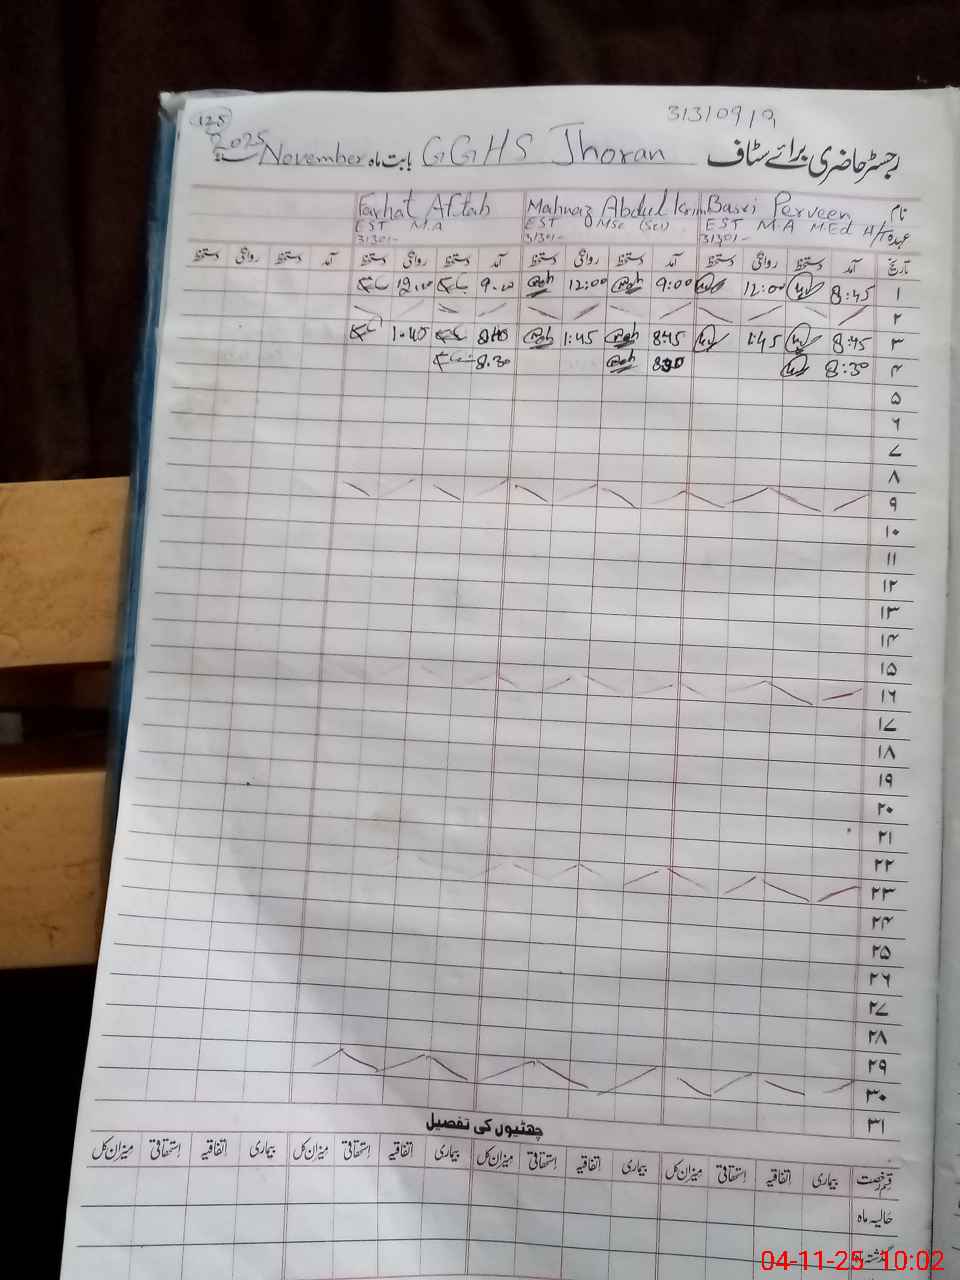 125
31310919
رجسٹر حاضری برائے سٹاف GGHS Jhoran بابت ماہ November 2025
نام Basri Perveen Mahnaz Abdul Karim Farhat Aftab
عہدہ H/T EST M.A M.Ed EST MSc (Sci) EST M.A
31301- 31301- 31301-
تاریخ آمد دستخط روانگی دستخط آمد دستخط روانگی دستخط آمد دستخط روانگی دستخط آمد دستخط روانگی دستخط
۱ 8:45 12:00 9:00 12:00 9.00 12.00
۲
۳ 8:45 1:45 8:45 1:45 8:45 1:45
۴ 8:30 8:30 8.30
۵
۶
۷
۸
۹
۱۰
۱۱
۱۲
۱۳
۱۴
۱۵
۱۶
۱۷
۱۸
۱۹
۲۰
۲۱
۲۲
۲۳
۲۴
۲۵
۲۶
۲۷
۲۸
۲۹
۳۰
۳۱
چھٹیوں کی تفصیل
قسم رخصت بیماری اتفاقیہ استحقاقی میزان کل بیماری اتفاقیہ استحقاقی میزان کل بیماری اتفاقیہ استحقاقی میزان کل بیماری اتفاقیہ استحقاقی میزان کل
حالیہ ماہ
گذشتہ ماہ
04-11-25 10:02